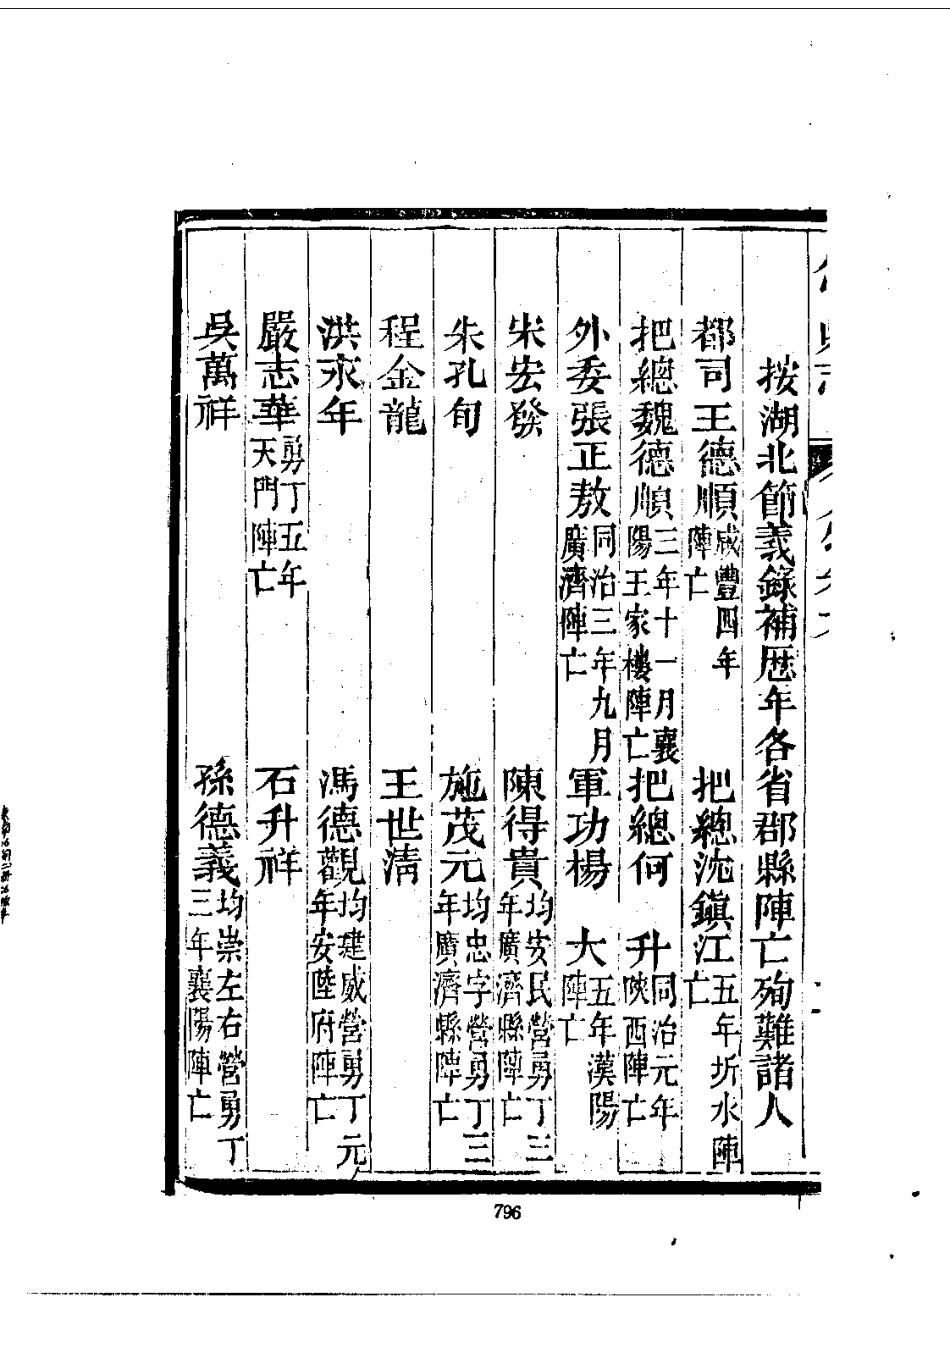 按湖北節義錄補歷年各省郡縣陣亡殉難諸人
都司王德順咸豐四年陣亡 把總沈鎮江五年圻水陣亡
把總魏德順三年十一月襄陽王家樓陣亡 把總何升同治元年陝西陣亡
外委張正敖同治三年九月廣濟陣亡 軍功楊大五年漢陽陣亡
宋宏發 陳得貴均安民營勇丁三年廣濟縣陣亡
朱孔旬 施茂元均忠字營勇丁三年廣濟縣陣亡
程金龍 王世淸
洪永年 馮德觀均建威營勇丁元年安陸府陣亡
嚴志華勇丁五年天門陣亡 石升祥
吳萬祥 孫德義均崇左右營勇丁三年襄陽陣亡
796